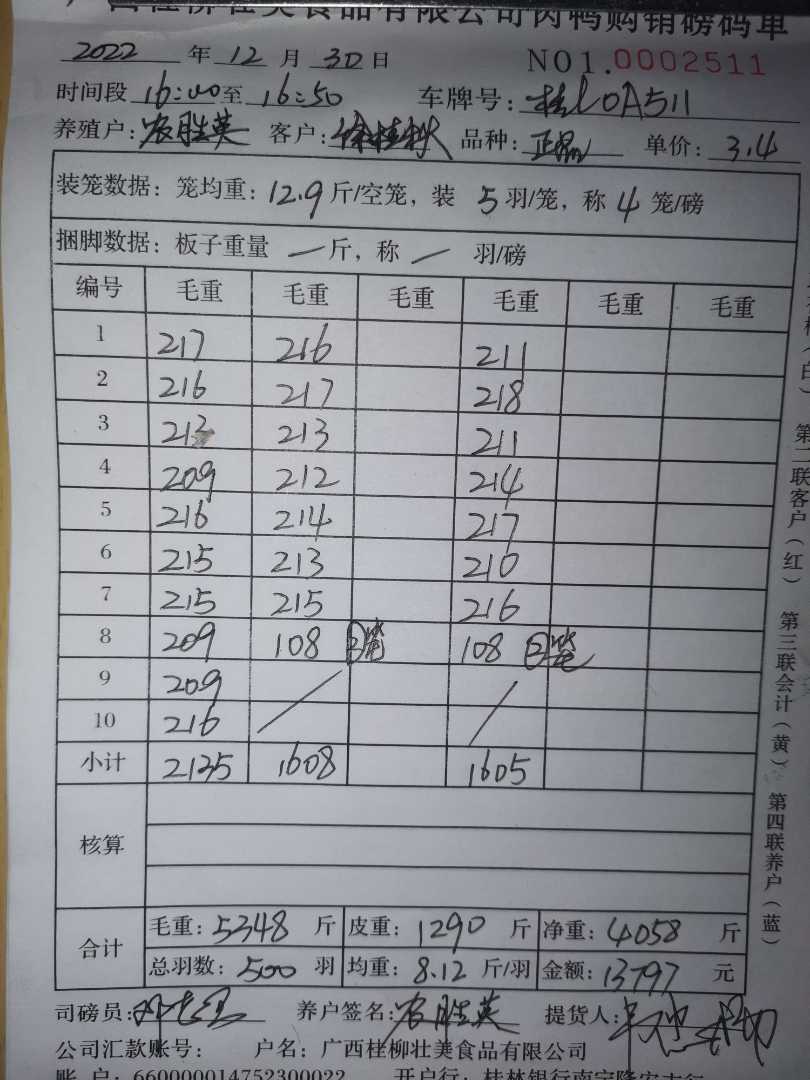 西桂柳壮美食品有限公司肉鸭购销磅码单
2022 年 12 月 30 日 NO1.0002511
时间段 16:00 至 16:50 车牌号: 桂LOA511
养殖户: 农胜英 客户: 品种: 正品 单价: 3.4
装笼数据: 笼均重: 12.9 斤/空笼, 装 5 羽/笼, 称 4 笼/磅
捆脚数据: 板子重量 — 斤, 称 — 羽/磅
编号 毛重 毛重 毛重 毛重 毛重 毛重
1 217 216 211
2 216 217 218
3 213 213 211
4 209 212 214
5 216 214 217
6 215 213 210
7 215 215 216
8 209 108 2笼 108 2笼
9 209
10 216
小计 2135 1608 1605
核算
合计 毛重: 5348 斤 皮重: 1290 斤 净重: 4058 斤
总羽数: 500 羽 均重: 8.12 斤/羽 金额: 13797 元
司磅员: 养户签名: 农胜英 提货人:
公司汇款账号: 户名: 广西桂柳壮美食品有限公司
账 户: 660000014752300022 开户行: 桂林银行南宁隆安支行
(白) 第二联客户(红) 第三联会计(黄) 第四联养户(蓝)